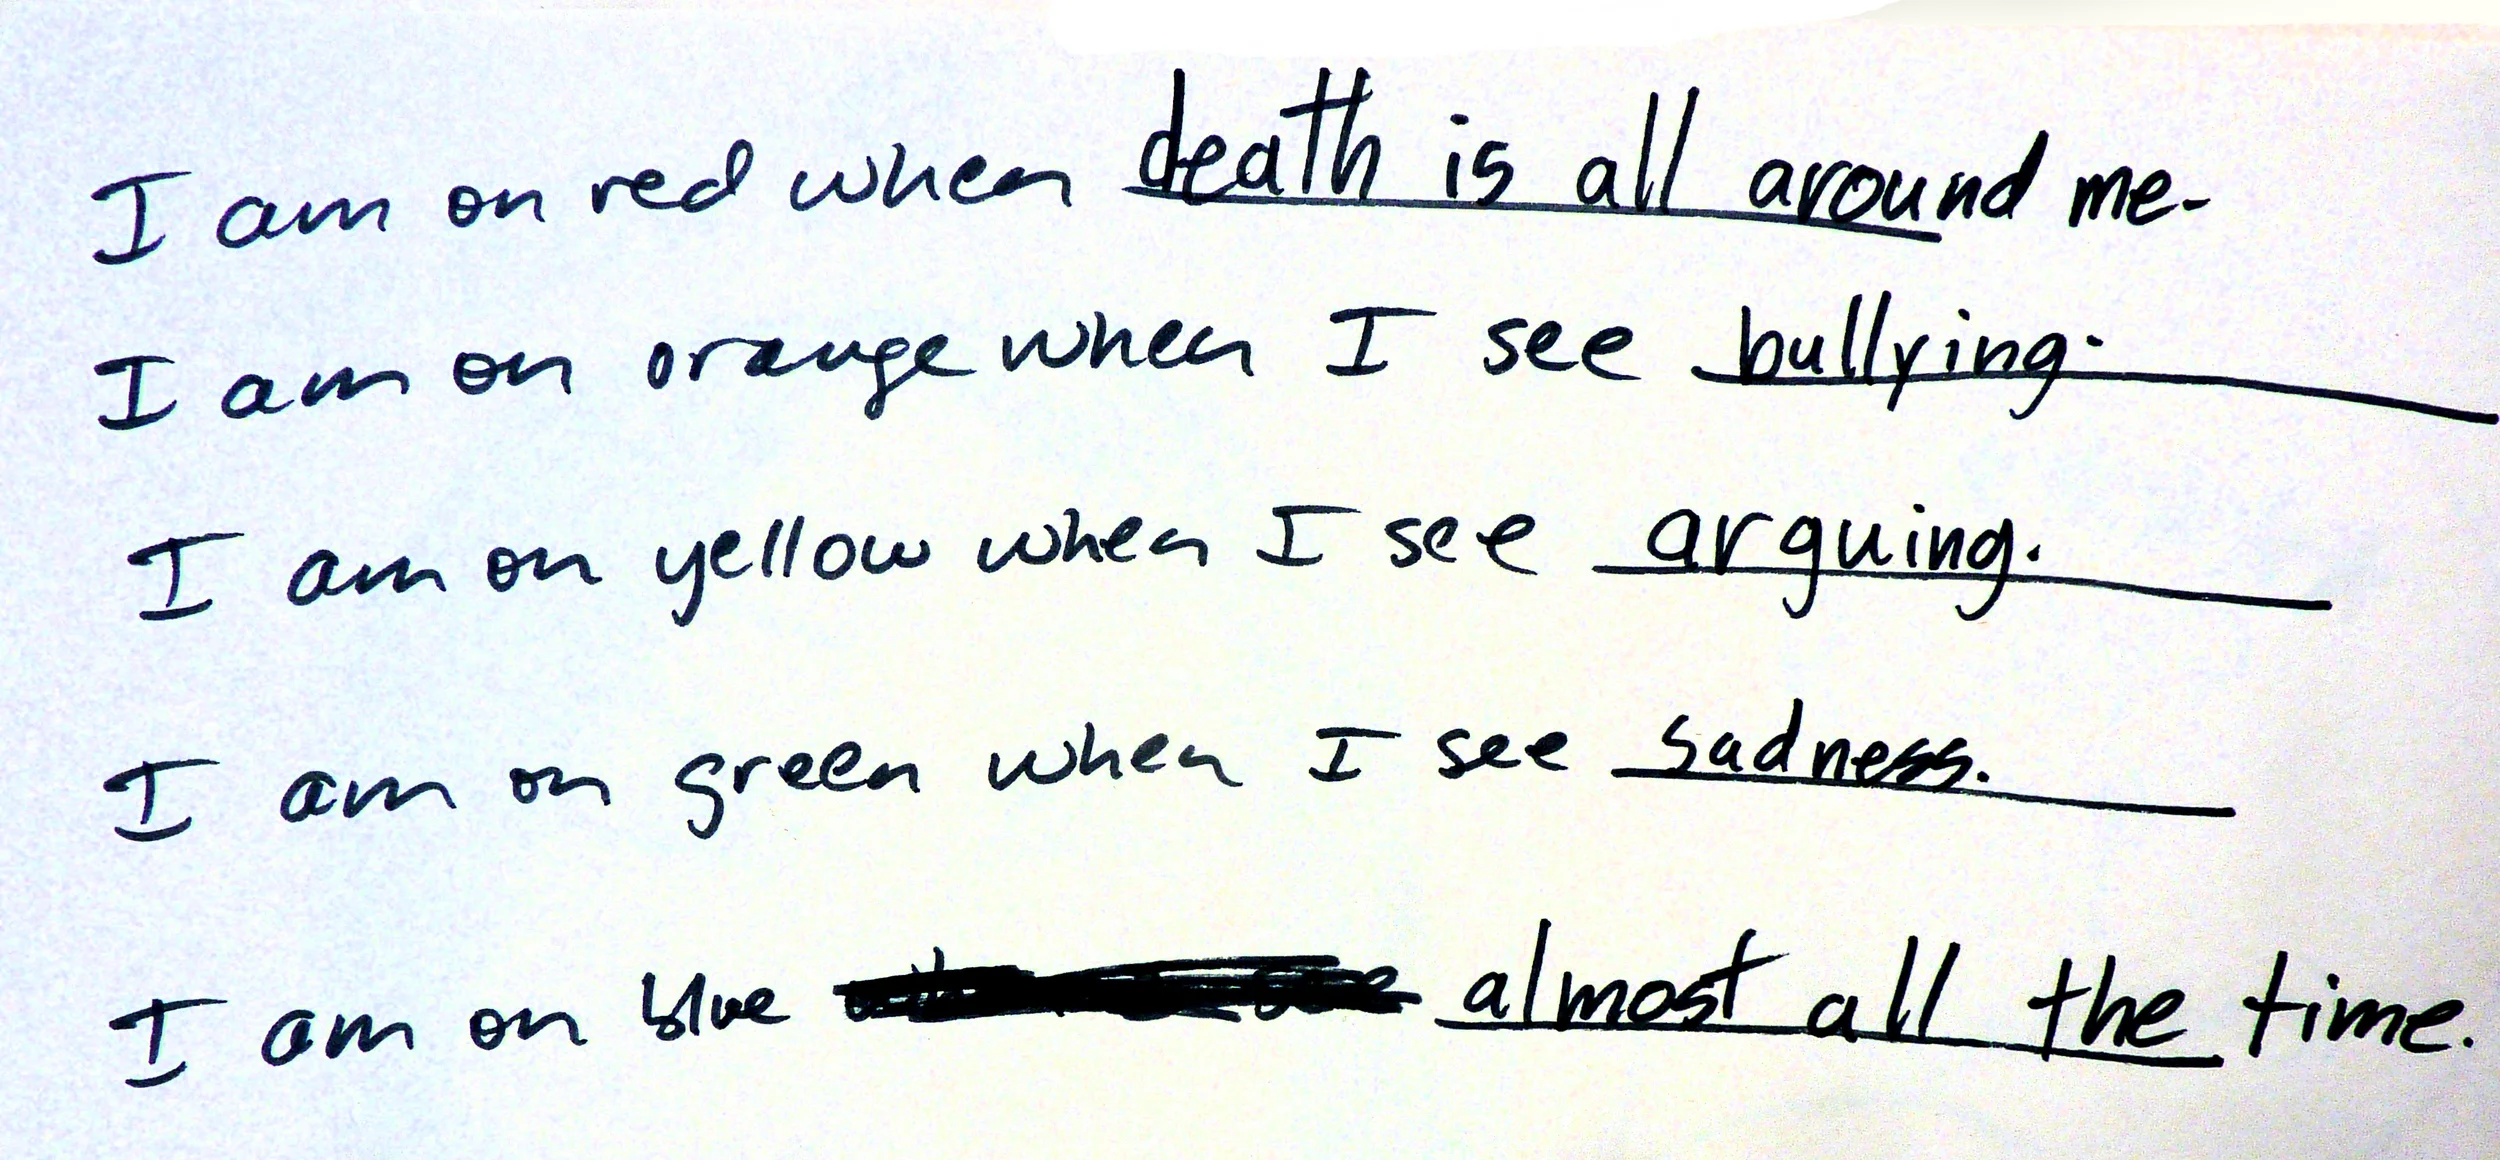 I am on red when death is all around me.
I am on orange when I see bullying.
I am on yellow when I see arguing.
I am on green when I see sadness.
I am on blue almost all the time.